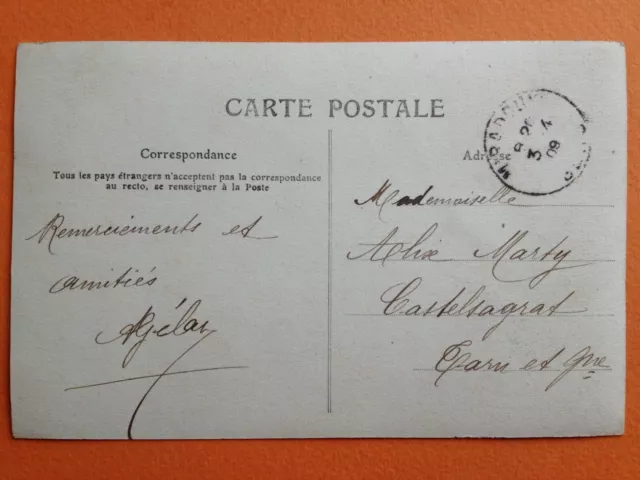 CARTE POSTALE
Correspondance
Tous les pays étrangers n'acceptent pas la correspondance
au recto, se renseigner à la Poste
Remerciements et
amitiés
Adresse
Mademoiselle
Alix Marty
Castelsagrat
Tarn et Gne
MIRADOUX GERS
3 4
09